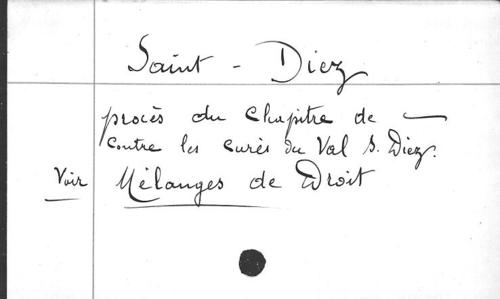 Saint - Diez
procès du Chapitre de —
contre les curés du Val S. Diez.
Voir Mélanges de Droit